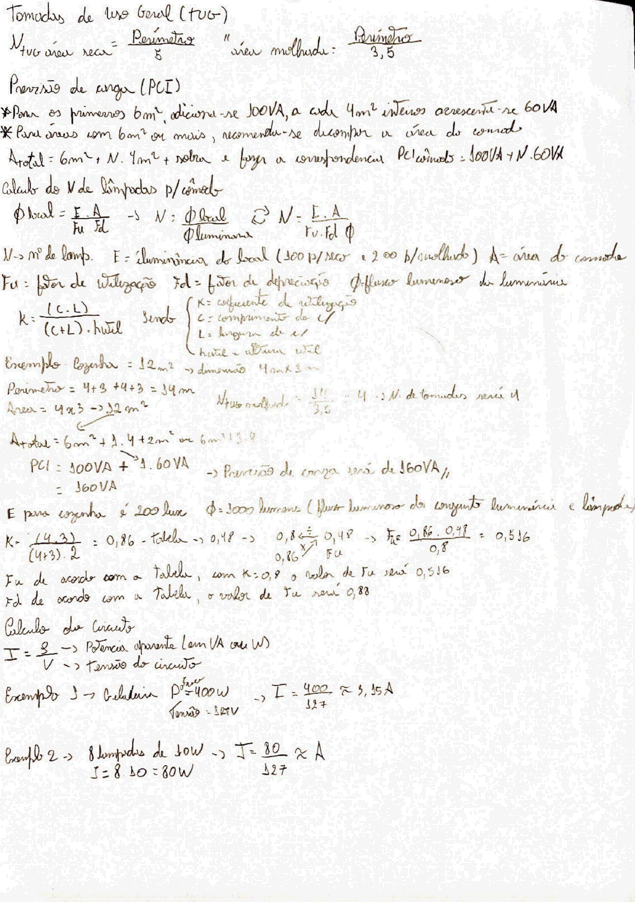 Tomadas de Uso Geral (TUG)
N TUG área seca = Perímetro / 5 " área molhada: Perímetro / 3,5
Previsão de carga (PCI)
* Para os primeiros 6m², adiciona-se 100VA, a cada 4m² inteiros acrescenta-se 60VA
* Para áreas com 6m² ou mais, recomenda-se decompor a área do comodo
Atotal = 6m² + N. 4m² + sobra e fazer a correspondencia PCI cômodo = 100VA + N.60VA
Calculo do N de lâmpadas p/cômodo
Φ local = E.A / Fu Fd -> N = Φ local / Φ luminaria N = E.A / Fu.Fd Φ
N -> nº de lamp. E = iluminância do local (100 p/seco e 200 p/molhado) A = área do comodo
Fu = fator de utilização Fd = fator de depreciação Φ = fluxo luminoso da luminária
K = (C.L) / (C+L).hutil sendo
K = coeficiente de utilização
C = comprimento do c/
L = largura do c/
hutil = altura util
Exemplo Cozinha = 12m² -> dimensão 4m x 3m
Perimetro = 4+3+4+3 = 14m
N TUG molhado = 14 / 3,5 = 4 -> N. de tomadas será 4
Área = 4x3 -> 12m²
Atotal = 6m² + 1.4 + 2m² ou 6m²
PCI = 100VA + 1.60VA -> Previsão de carga será de 160VA //
= 160VA
E para cozinha é 200 lux Φ = 1000 lumens (fluxo luminoso do conjunto luminária e lâmpada)
K = (4.3) / (4+3).2 = 0,86 - tabela -> 0,48 -> 0,8 0,48 0,86 x Fu -> Fu = 0,86.0,48 / 0,8 = 0,516
Fu de acordo com a tabela, com K=0,8 o valor de Fu será 0,516
Fd de acordo com a tabela, o valor de Fu será 0,88
Calculo do Circuito
I = S / V -> Potencia aparente (em VA ou W)
-> tensão do circuito
Exemplo 1 -> Geladeira P = 400W -> I = 400 / 127 ≈ 3,15A
Tensão = 127V
Exemplo 2 -> 8 lampadas de 10W -> I = 80 / 127 ≈ A
I = 8 10 = 80W